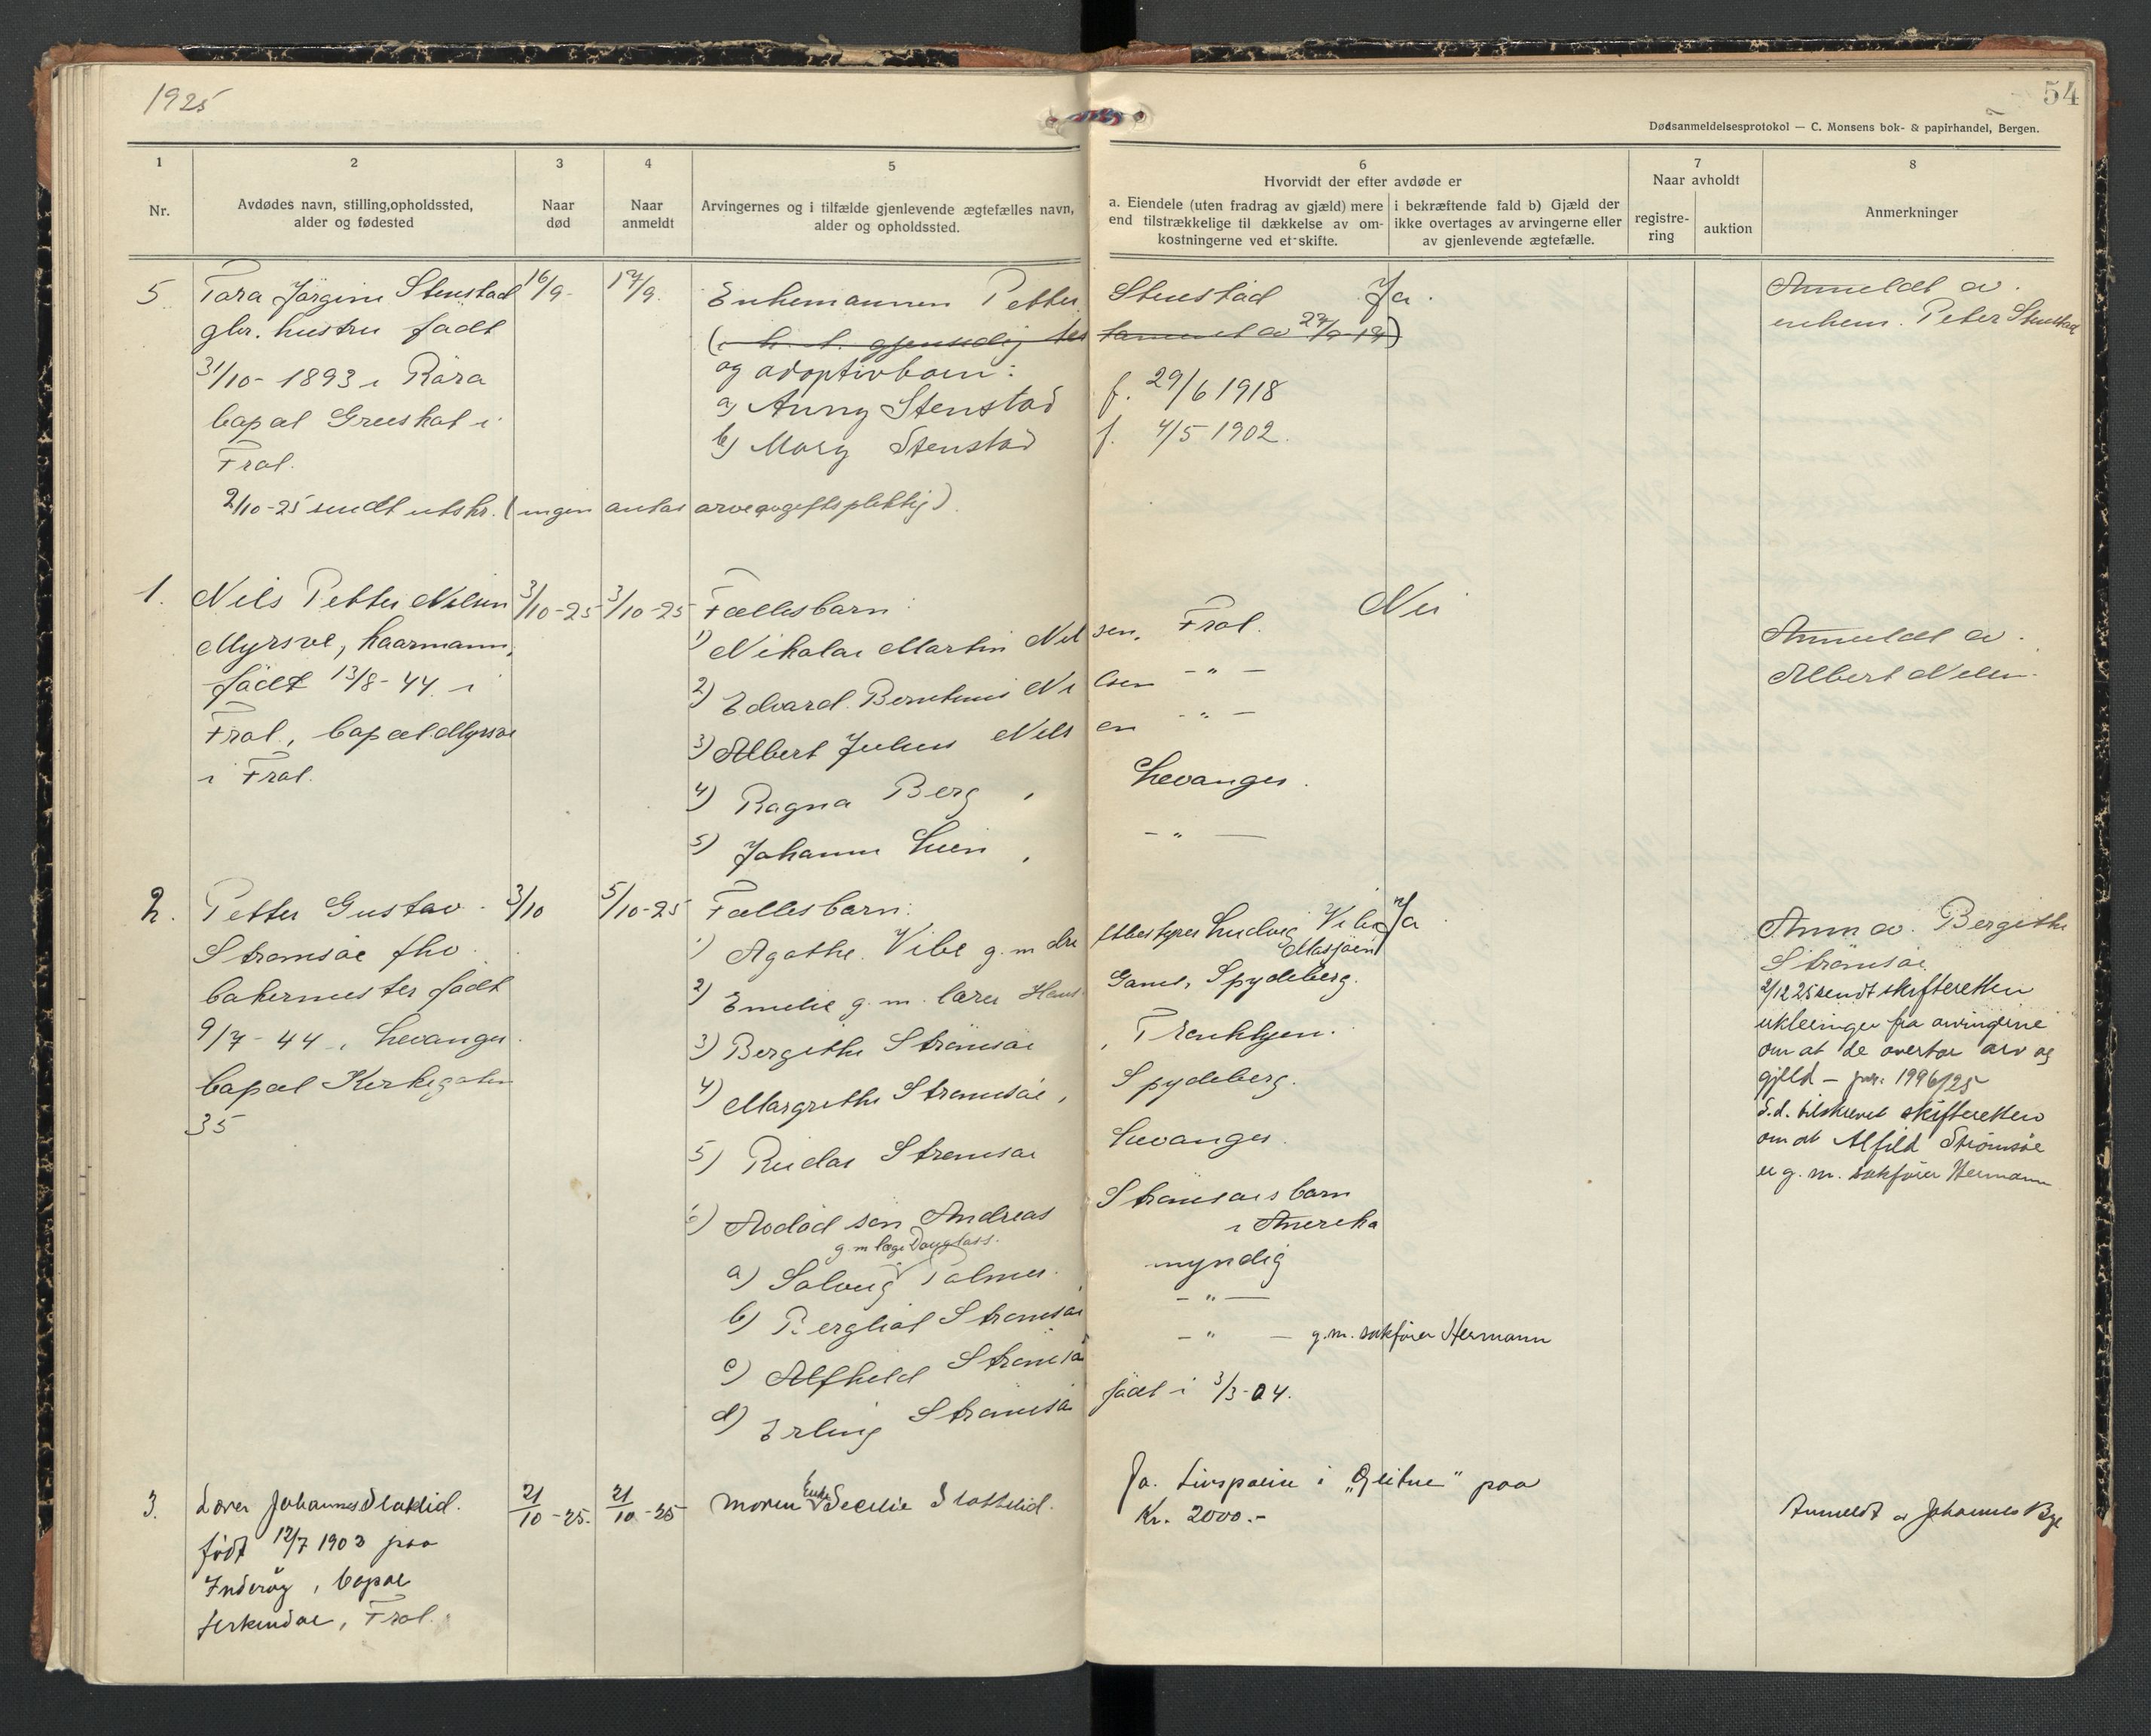 1925
54
Dødsanmeldelsesprotokol — C. Monsens bok- & papirhandel, Bergen.
1
2
3
4
5
6
7
8
Nr.
Avdødes navn, stilling,opholdssted,
alder og fødested
Naar
død
Naar
anmeldt
Arvingernes og i tilfælde gjenlevende ægtefælles navn,
alder og opholdssted.
Hvorvidt der efter avdøde er
a. Eiendele (uten fradrag av gjæld) mere
end tilstrækkelige til dækkelse av om-
kostningerne ved et skifte.
i bekræftende fald b) Gjæld der
ikke overtages av arvingerne eller
av gjenlevende ægtefælle.
Naar avholdt
registre-
ring
auktion
Anmerkninger
5 Tora Jørgine Stenstad 16/9- 17/9. Enkemannen Petter Stenstad Ja. Anmeldt av
gbr. hustru født enkem. Peter Stenstad
31/10- 1893 i Røra og adoptivbarn:
bopæl i a) Anny Stenstad f. 29/6 1918
Frol. b) Mary Stenstad f. 4/5 1902.
2/10-25 sendt utskr. (ingen antas arveavgiftspliktig).
1. Nils Petter Nilsen 3/10-25 3/10-25 Fællesbarn: Nei
Myrsve, kaarmann, 1) Nikolai Martin Nilsen, Frol. Anmeldt av
født 13/8-44 i 2) Edvard Bernthinus Nilsen -"- Albert Nilsen.
Frol, bopæl Myrsve 3) Albert Julius Nilsen -"-
i Frol. 4) Ragna Berg, Levanger.
5) Johanne Lien, -"-
2. Petter Gustav 3/10 5/10-25 Fællesbarn: Ja
Strømsøe fhv. 1) Agathe Vibe g.m. Ludvig Vibe Mosjøen Anm av. Bergithe
bakermester født 2) Emelie g.m. lærer Hans Spydeberg. Strømsøe
9/7-44, Levanger. 3) Bergithe Strømsøe, Trondhjem. 2/12 25 sendt skifteretten
bopæl Kirkegaten 4) Margrethe Strømsøe, Spydeberg. erklæringer fra arvingerne
35 5) Reidar Strømsøe Levanger. om at de overtar arv og
6) Avdød søn Andreas Strømsøes barn gjæld — jnr. 1996/25
i Amerika S.d. tilskrevet skifteretten
g.m. læge Douglass. om at Alfild Strømsøe
a) Solveig Palmer. myndig er g.m. sakfører Hermann
b) Bergliot Strømsøe -"-
c) Alfhild Strømsøe -"- g.m. sakfører Hermann
d) Erling Strømsøe født i 3/3-04.
3. Lærer Johannes Slottelid. 21/10-25. 21/10-25 moren Enke Secelie Slottelid. Ja. Livspolise i „Gjeitne" paa Anmeldt av Johannes Bye
født 12/7 1903 paa Kr. 2000.-
Inderøy, bopæl
Frol.